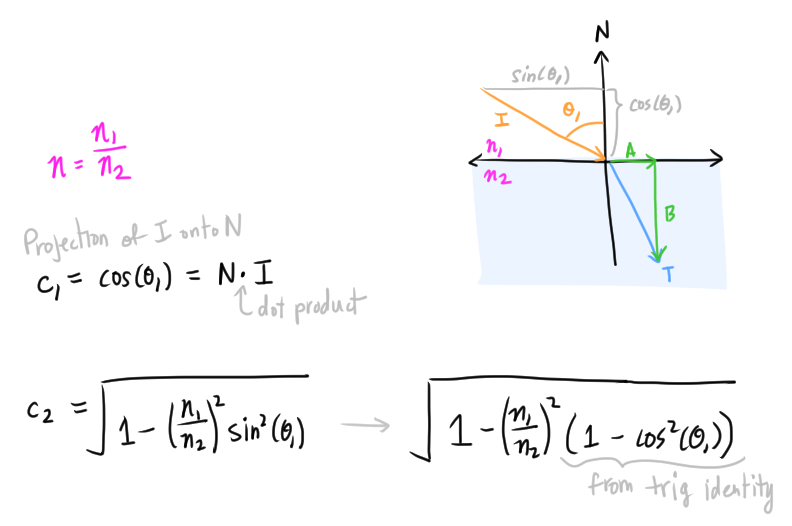 N
sin(θ₁)
θ₁
cos(θ₁)
I
n₁
A
n₂
B
T
n = n₁/n₂
Projection of I onto N
c₁ = cos(θ₁) = N · I
dot product
c₂ = √(1 − (n₁/n₂)² sin²(θ₁)) → √(1 − (n₁/n₂)² (1 − cos²(θ₁)))
from trig identity